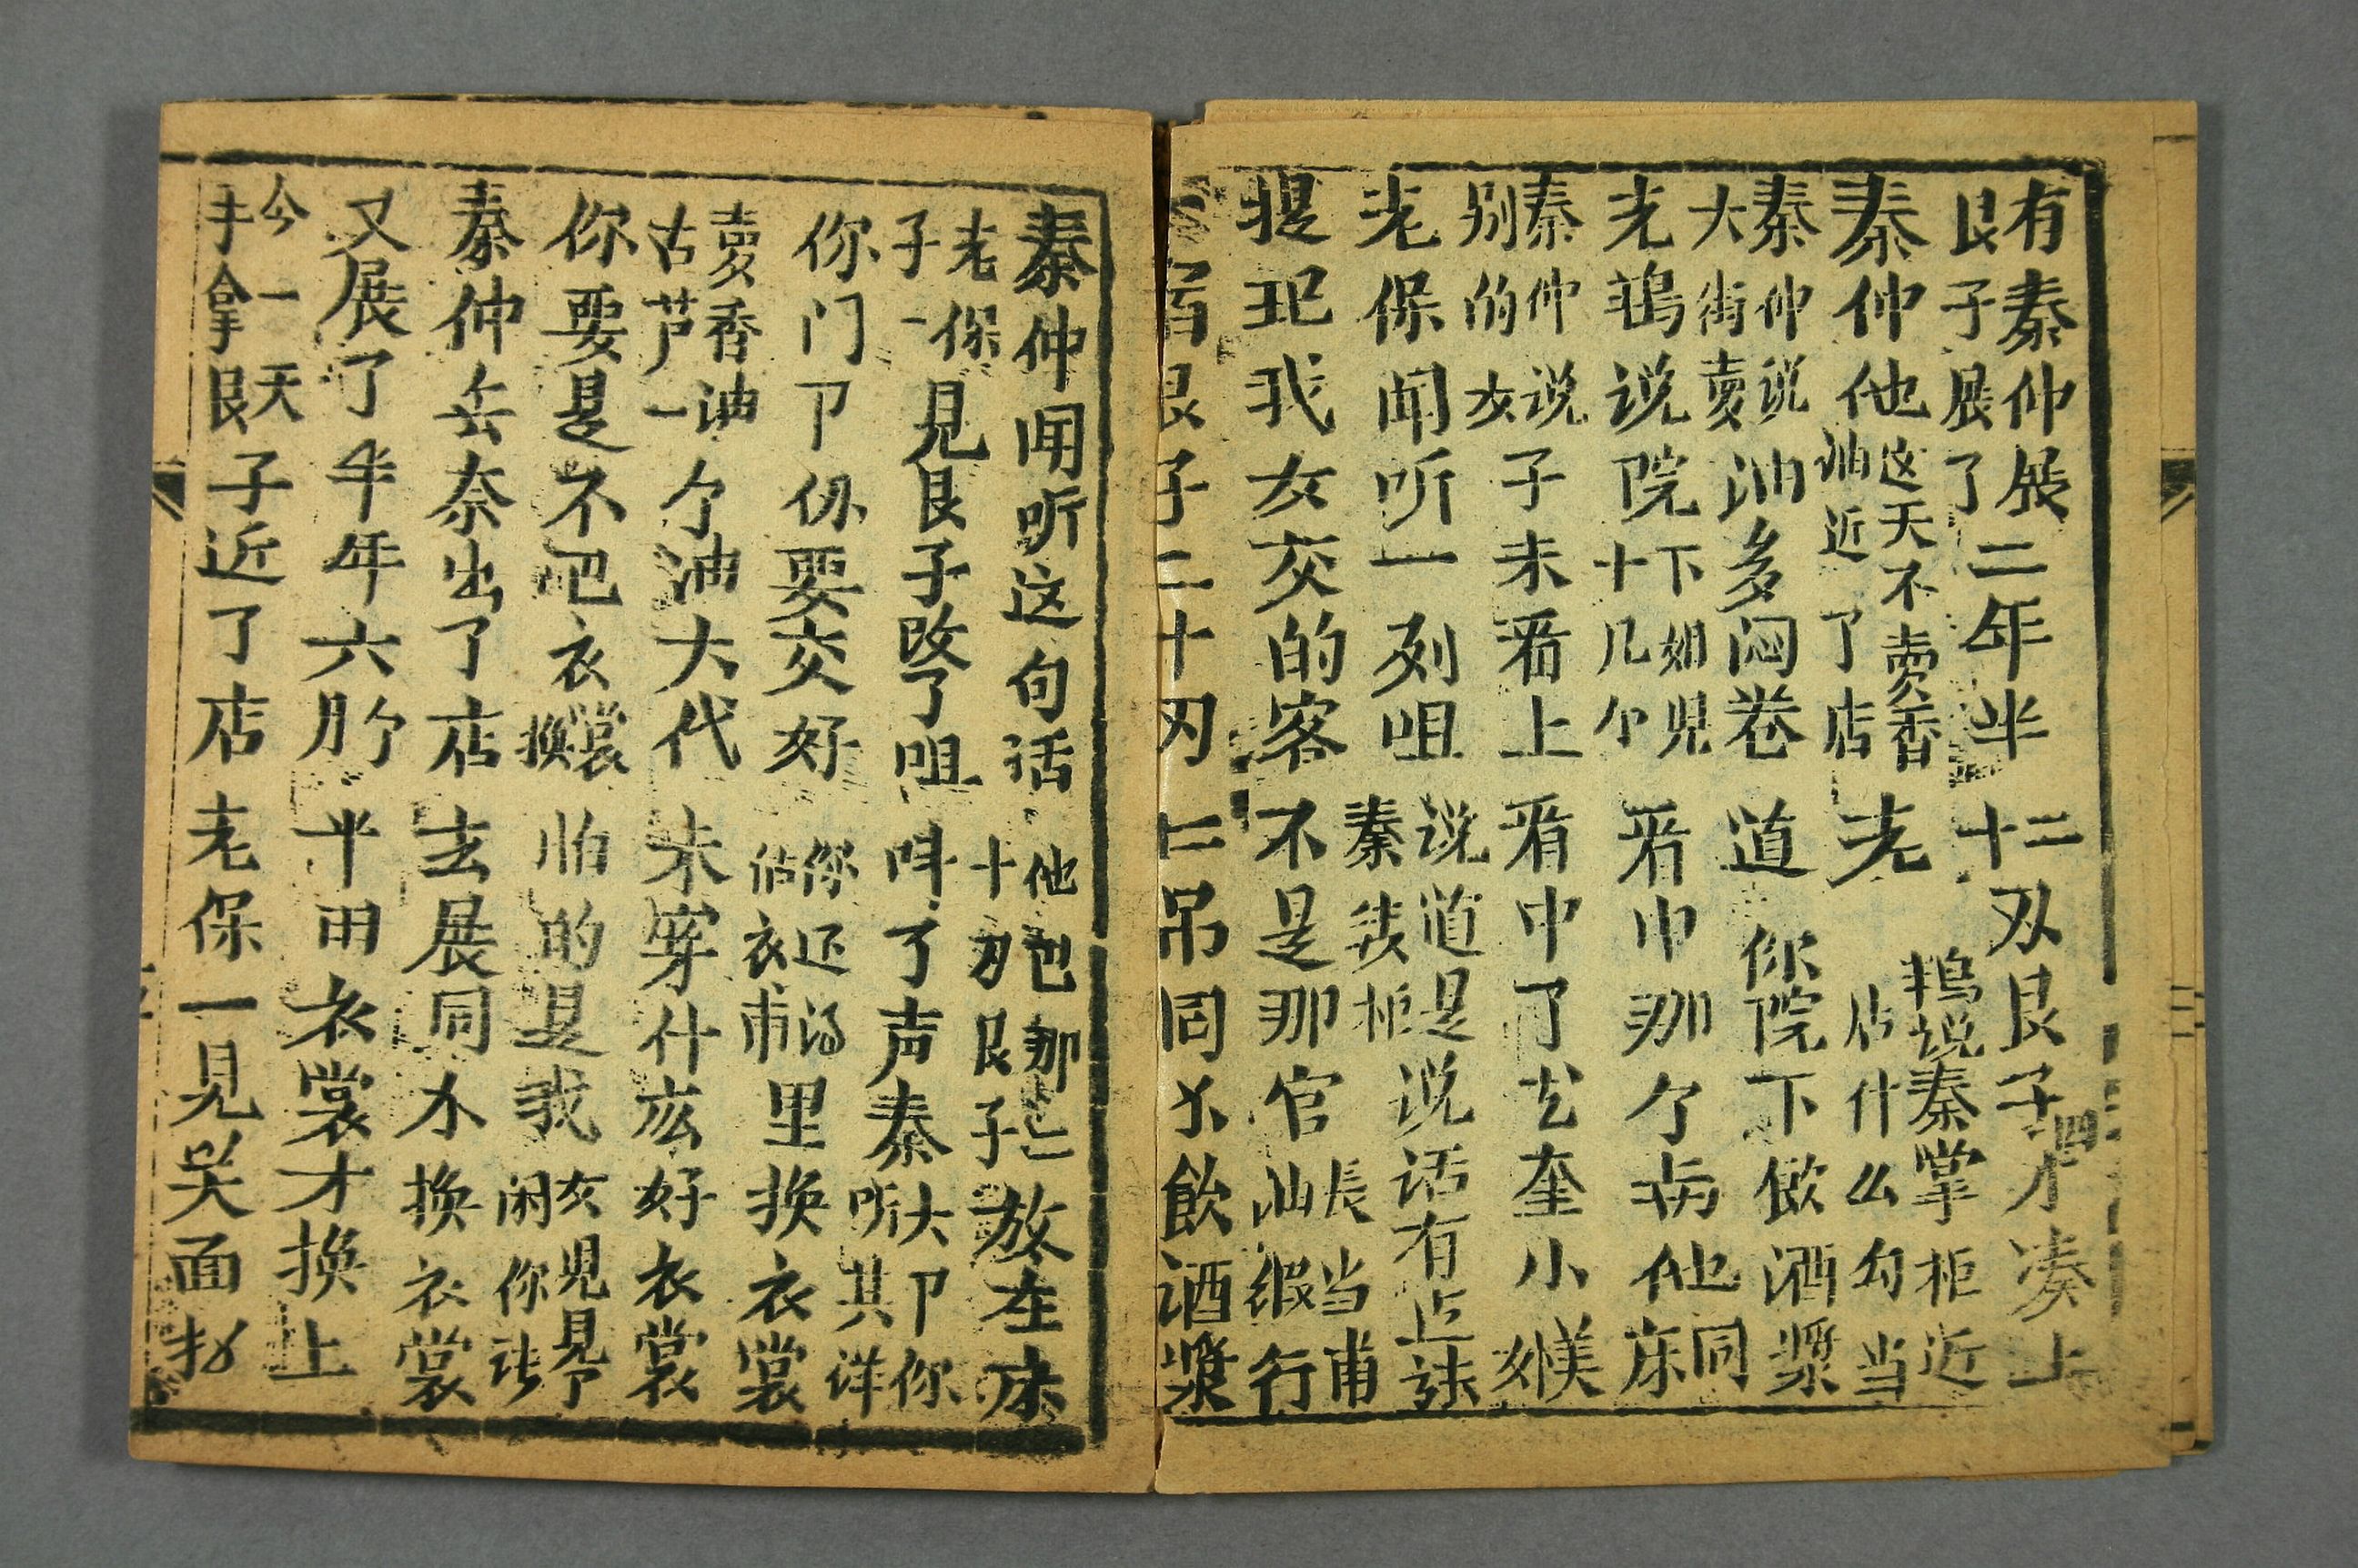 有秦仲展艮子展了二年半二十刄艮子才凑上
秦仲他这天不卖香油近了店老鸨说秦掌柜近店什么勾当
秦仲说大街卖油多闷卷道你院下飲酒漿
老鸨说院下姐兒十几个看中那个病他同床
秦仲说别的女子未看上看中了尤奎小美
老保闻听一列咀说道是秦掌柜说话有
提起我女交的客不是那官長当甫油缎行
宿艮子二十刄二吊同水飲酒漿
秦仲闻听这句话他包那二十刄艮子放在床
老保子一见艮子改了咀呌了声秦大卩你听其详
你门卩你要交好你还得估衣甫里换衣裳
卖香油古芦一个油大代未穿什庅好衣裳
你要是不把衣裳换怕的是我女兒見卩闲你
秦仲无奈出了店去展同水换衣裳
又展了半年六月个半田衣裳才换上
今一天手拿艮子近了店老保一见笑面扬